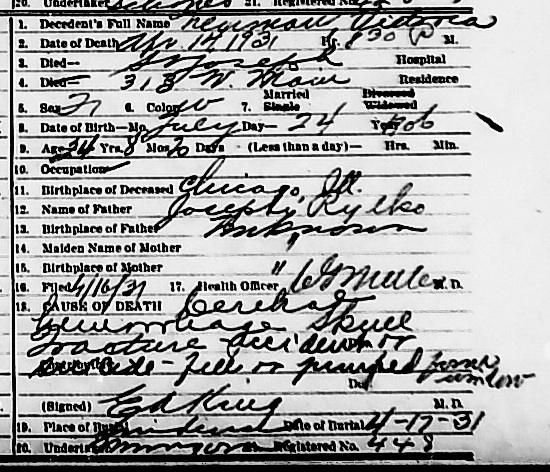 20. Undertaker 21. Registered No.
1. Decedent's Full Name Neyman Victoria
2. Date of Death Apr. 14 1931 Hr. 8 30 P M.
3. Died— St Joseph Hospital
4. Died— 318 W. Residence
5. Sex F 6. Color W 7. Married Single Divorced Widowed
8. Date of Birth—Mo. July Day— 24 Yr. 06
9. Age 24 Yrs. 8 Mos. Days (Less than a day)— Hrs. Min.
10. Occupation
11. Birthplace of Deceased Chicago, Ill.
12. Name of Father Joseph Rylko
13. Birthplace of Father Unknown
14. Maiden Name of Mother "
15. Birthplace of Mother "
16. Filed 4/16/31 17. Health Officer M.D.
18. CAUSE OF DEATH Cerebral
Hemorrhage Skull
Fracture - Accident or
Suicide - fell or jumped from
window
(Signed) Ed King M.D.
19. Place of Burial Date of Burial 4-17-31
20. Undertaker 21. Registered No. 448